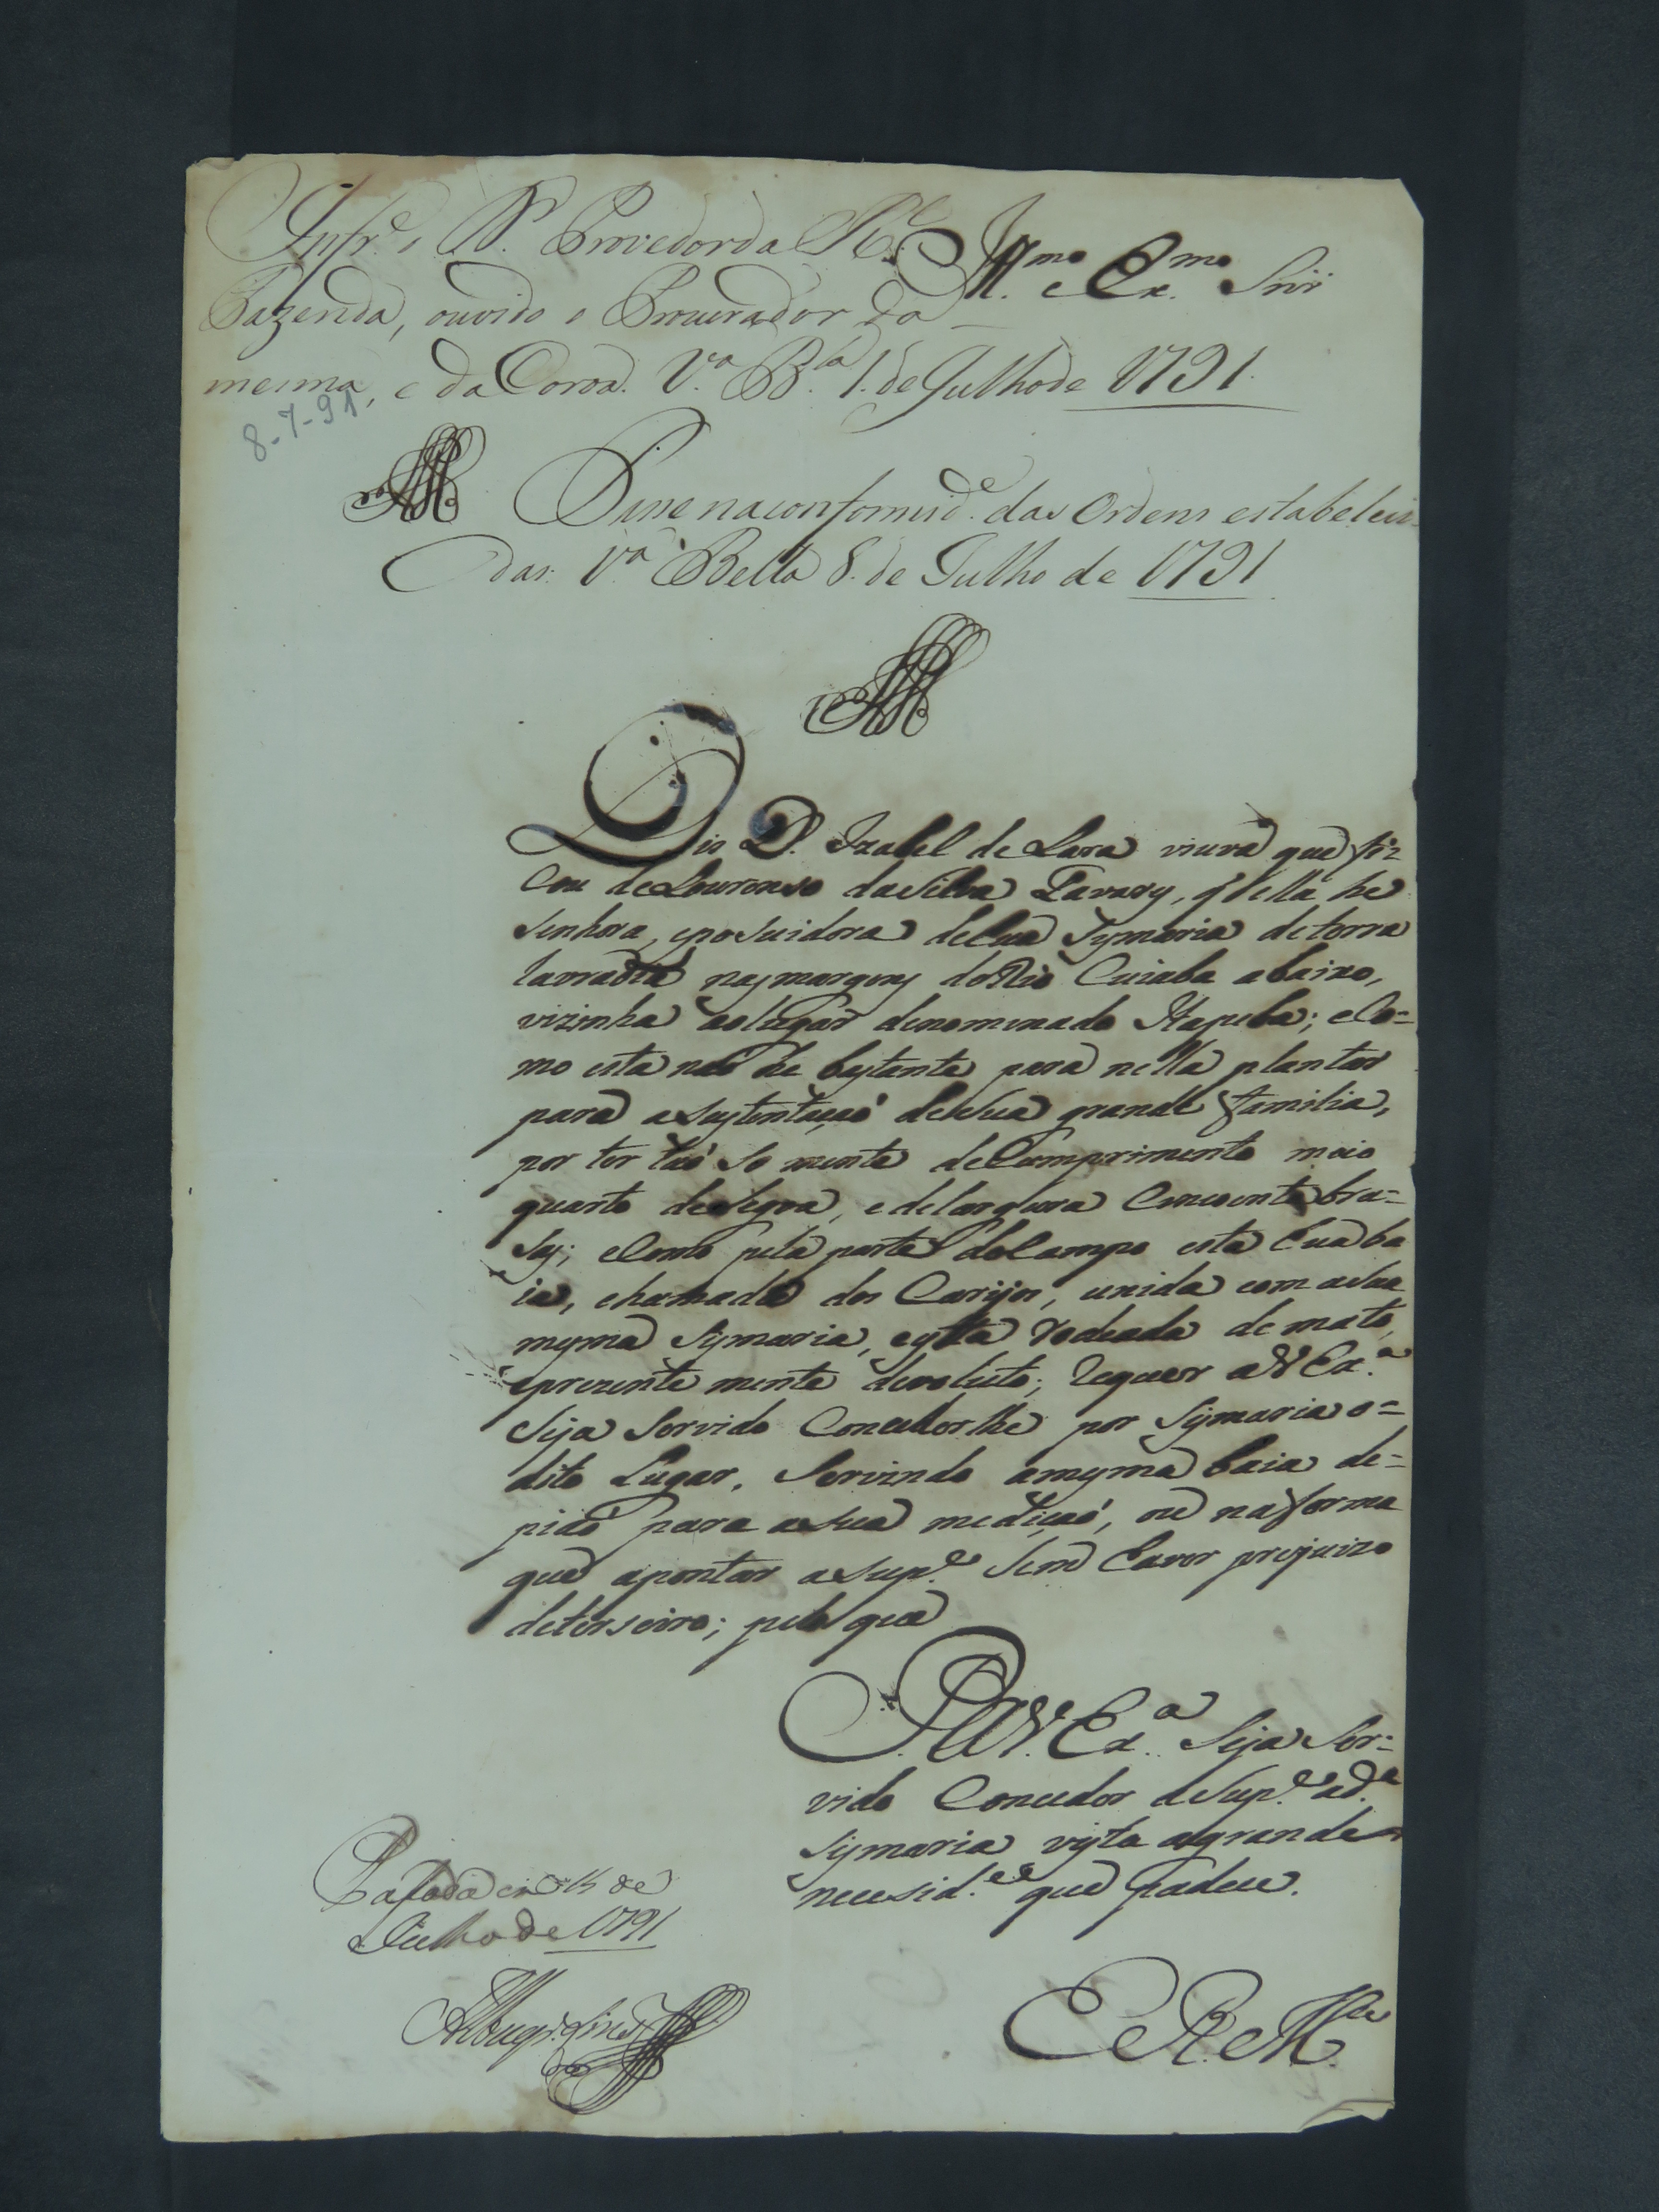 Infr.e o Dr. Provedor da Rl.
Fazenda, ouvido o Procurador da
mesma, e da Coroa. V.a B.la 1. de Julho de 1791.
8-7-91
Ill.mo e Ex.mo Snr
Passe na conformid.e das Ordens estabeleci-
das. V.a Bella 8. de Julho de 1791
Dis D. Izabel de Lara viuva que fi=
cou de Lourenso da Silva Tavares, q' ella he
senhora, e posuidora de hua Sysmaria de terra
lavradia nas margens do Rio Cuiaba abaixo,
vizinha ao lugar denominado Itapeba; e Co=
mo esta não he bastante para nella plantar
para a sustentação de sua grande familia,
por ter tão so mente de Cumprimento meio
quarto de Legoa, e de largura Cincoenta bra=
sas; e Como pela parte do Campo esta hua ba
ia, chamada dos Carijos, unida com a sua
mesma Sysmaria, e esta rodeada de mato,
e prezente mente devoluto; requer a V Ex.a
Seja Servido Conceder lhe por Sysmaria o=
dito Lugar, Servindo a mesma baia de=
pião para a sua medição, ou na forma
que apontar a Sup.e Sem haver prejuizo
de terseiro; pelo que
P. a V. Ex.a Seja Ser=
vido Conceder a Sup.e a d.a
Sysmaria vista a grande
necesid.e que padece.
E R. M.ce
Pasada em 14 de
Julho de 1791